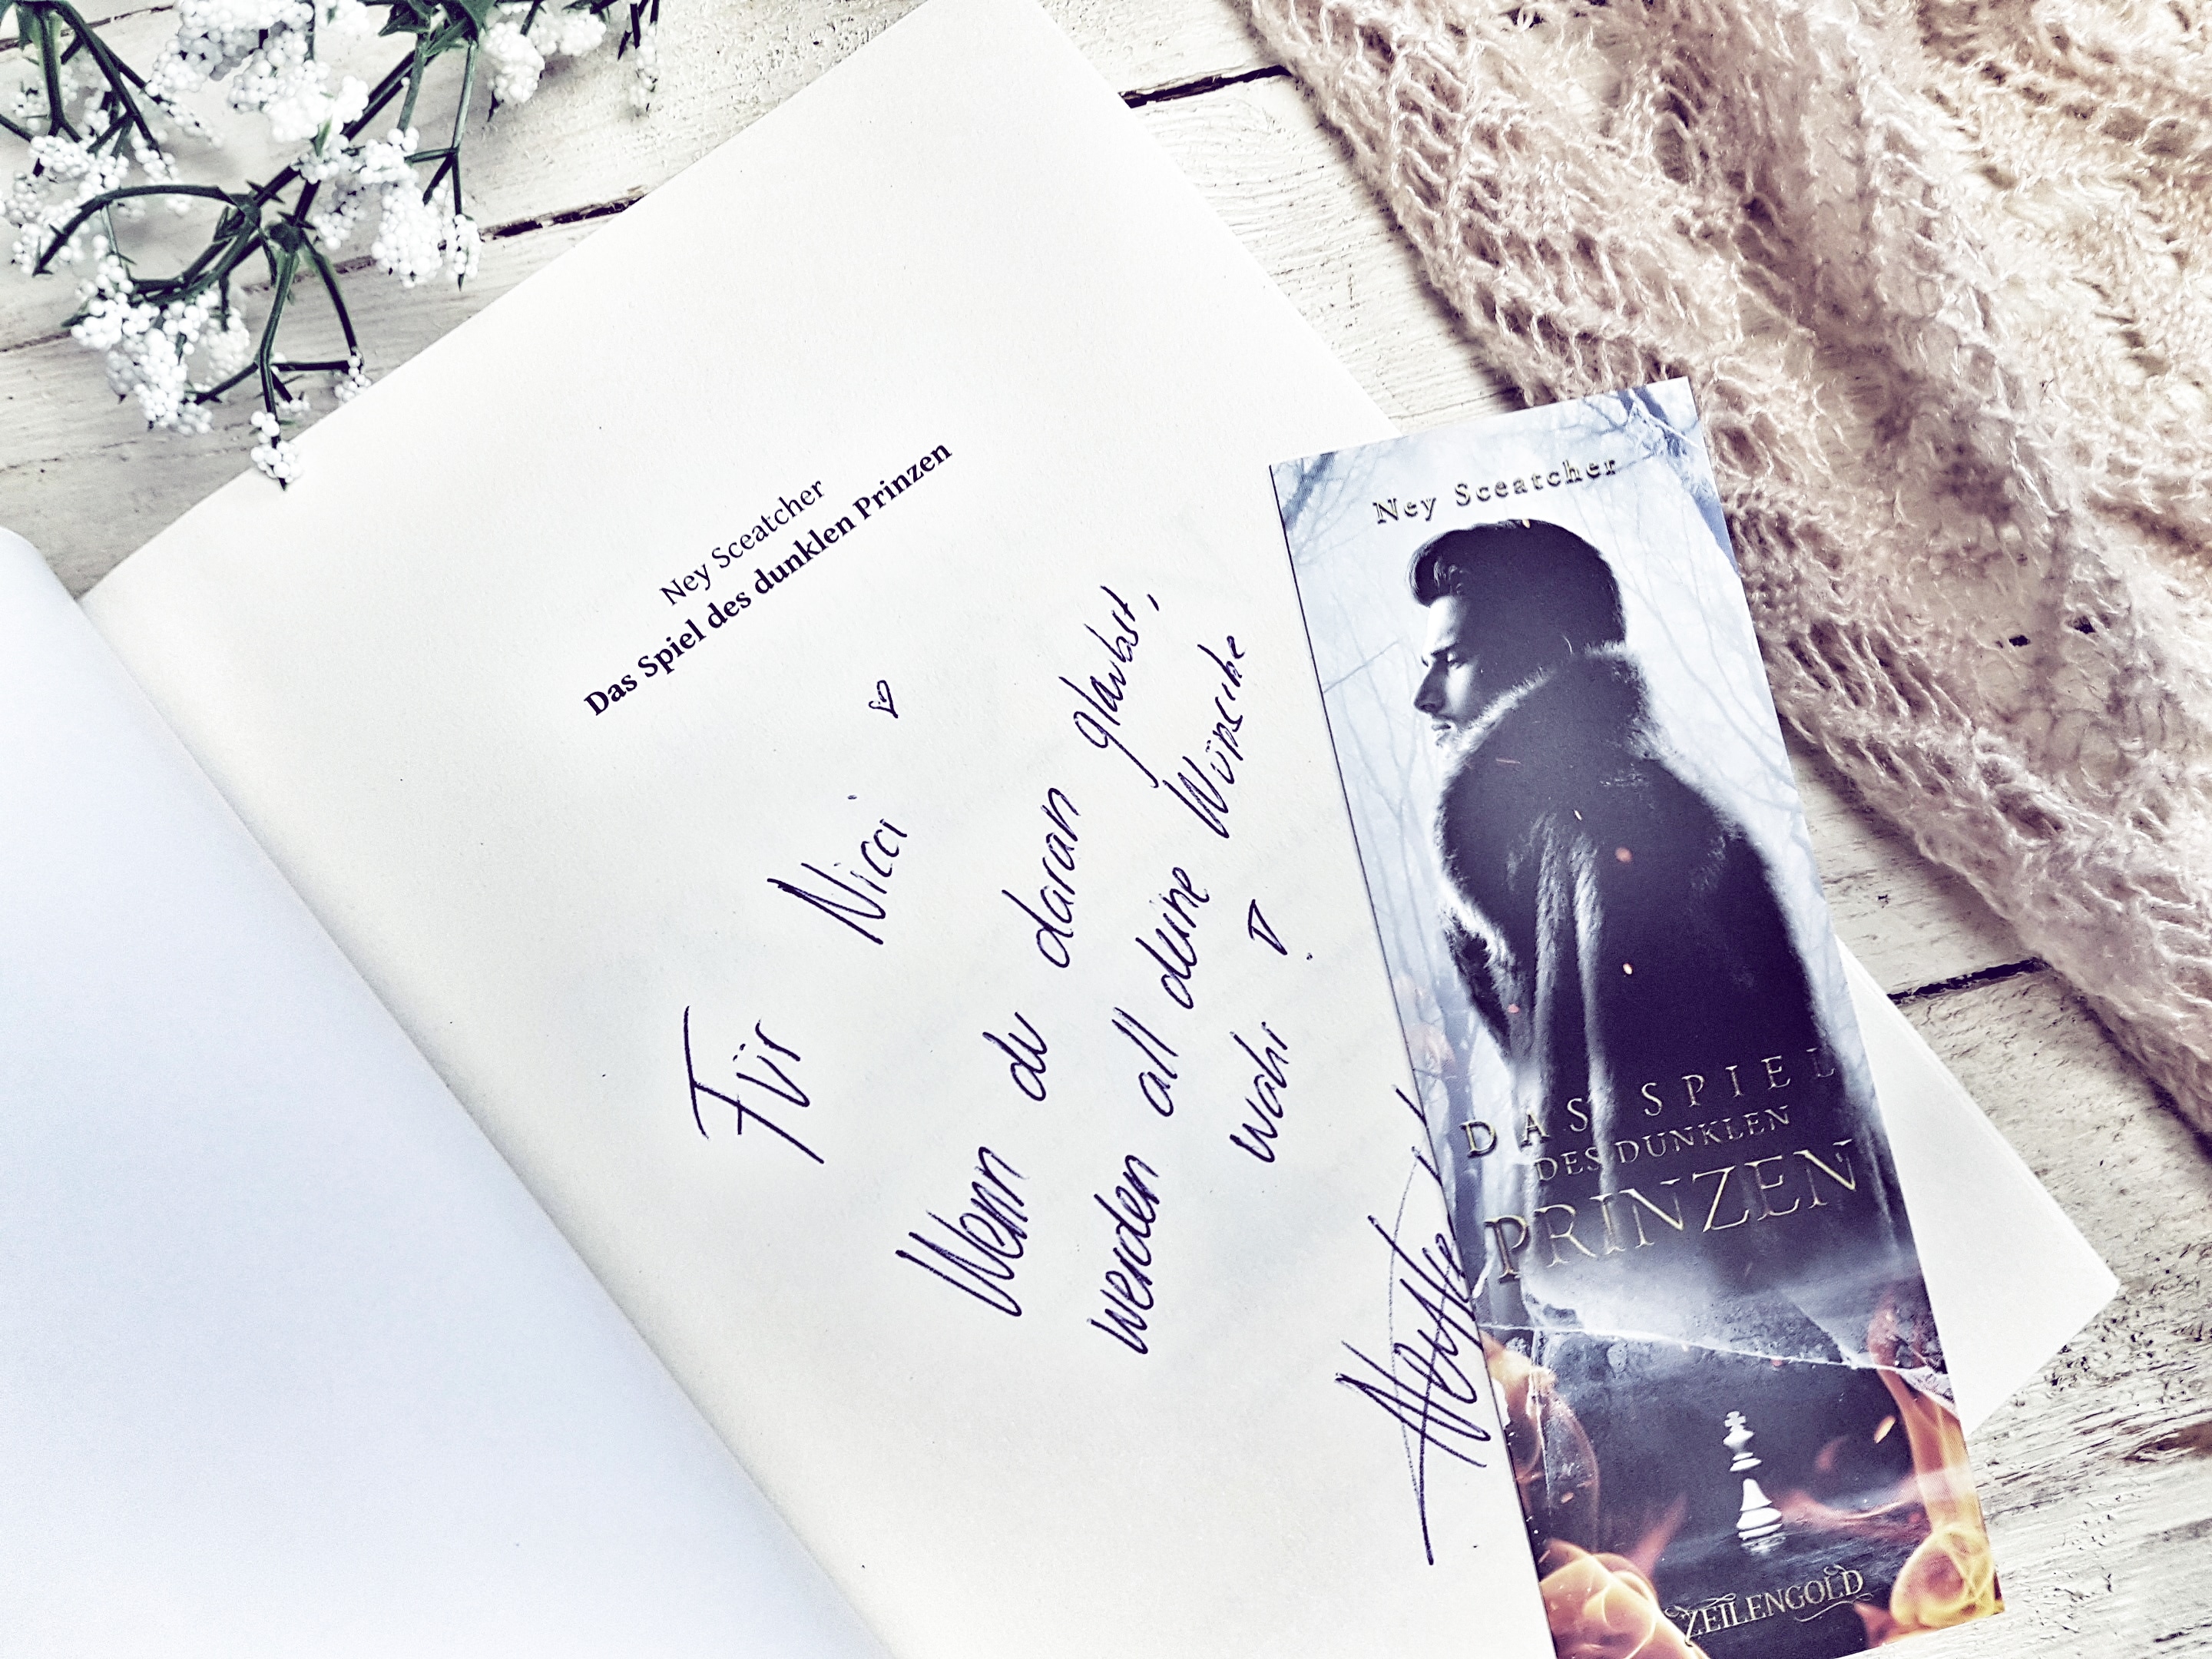 Ney Sceatcher
Das Spiel des dunklen Prinzen
Für Nicci
Wenn du daran glaubst,
werden all deine Wünsche
wahr!
Ney Sceatcher
DAS SPIEL
DES DUNKLEN
PRINZEN
ZEILENGOLD